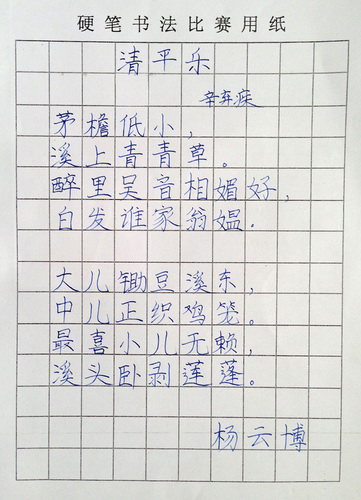 硬笔书法比赛用纸
清平乐
辛弃疾
茅檐低小，
溪上青青草。
醉里吴音相媚好，
白发谁家翁媪.
大儿锄豆溪东，
中儿正织鸡笼。
最喜小儿无赖，
溪头卧剥莲蓬。
杨云博